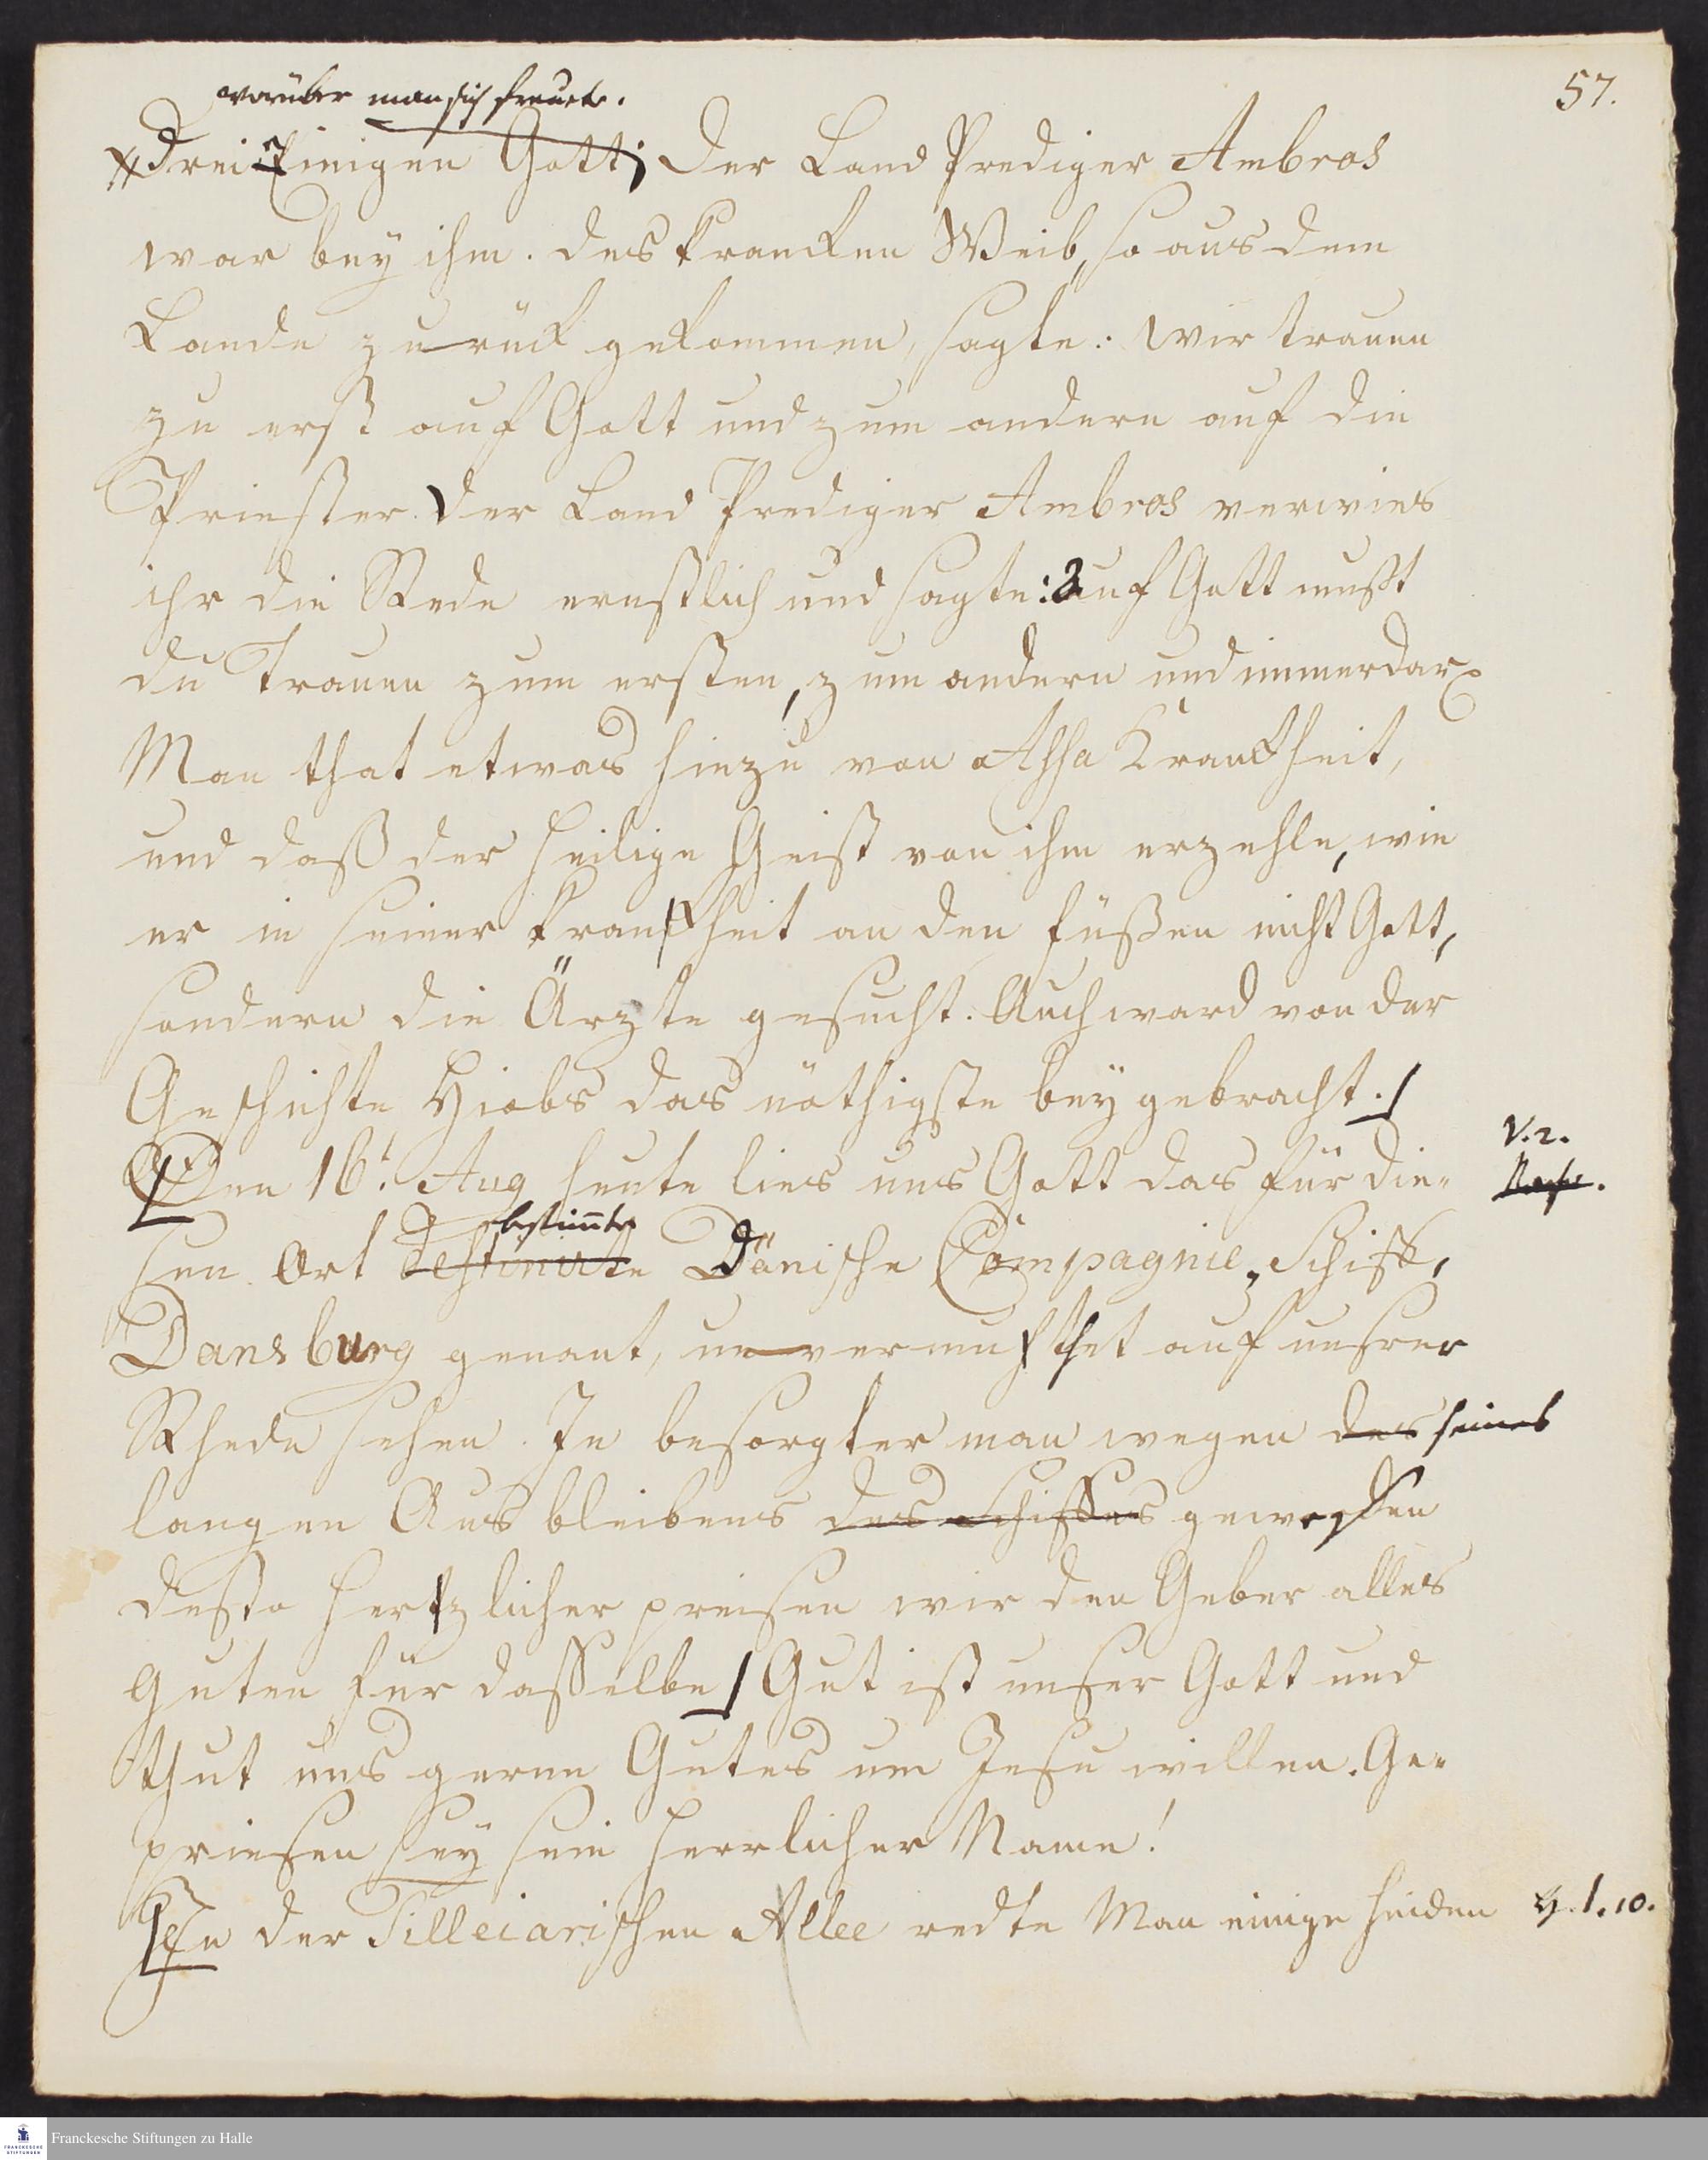 57.
worüber man sich freuete.
dreieinigen Gott; Der Land Prediger Ambros
war bey ihm. des krancken Weib, so aus dem
Lande zurück gekommen, sagte: wir trauen
zu erst auf Gott und zum andern auf die
Priester. Der Land Prediger Ambros verwies
ihr die Rede ernstlich und sagte: auf Gott must
du trauen zum ersten, zum andern und immerdar
Man that etwas hinzu von Assa Kranckheit,
und daß der heilige Geist von ihm erzehle, wie
er in seiner krankheit an den füßen nicht Gott,
sondern die Ärzte gesucht. Auch ward von der
Geschichte Hiobs das nöthigste beygebracht.
V. 2.
Den 16t Aug heute lies uns Gott das für die-
bestimte
sen Ort destinirte Dänische Compagnie Schiff,
Dansburg genant, unvermuthet auf unsrer
Rhede sehen. Je besorgter man wegen des seines
langen Ausbleibens des Schiffes geworden
desto hertzlicher preisen wir den Geber alles
guten für dasselbe Gut ist unser Gott und
thut uns gerne Gutes um Jesu willen. Ge-
priesen sey sein herrlicher Name!
In der Tilleiarischen Allee redte Man einige heiden 1. 10.
Franckesche Stiftungen zu Halle
FRANCKESCHE
STIFTUNGEN